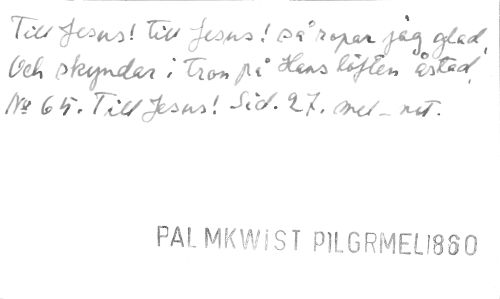 Till Jesus! till Jesus! så ropar jag glad,
Och skyndar i tron på Hans löften åstad,
№ 65. Till Jesus! Sid. 27. mel-not.
PALMKWIST PILGRMEL1860